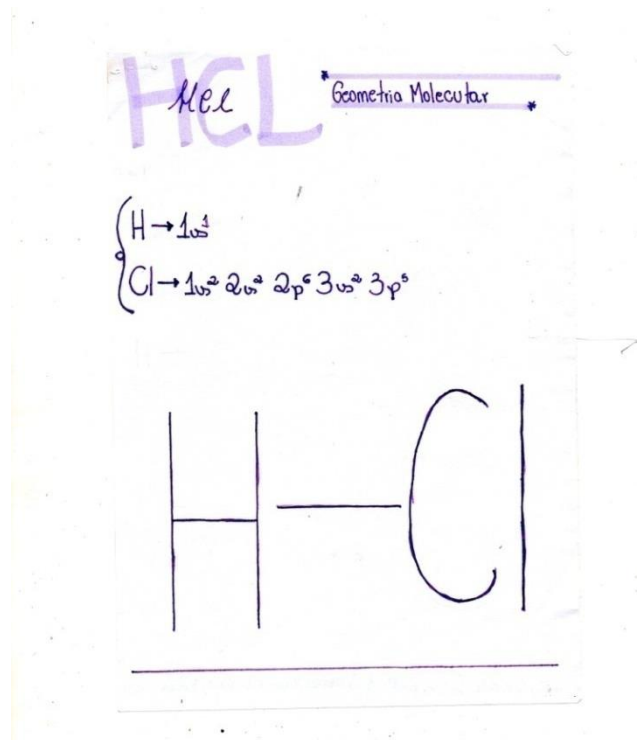 HCL
HCl
Geometria Molecular
H → 1s¹
Cl → 1s² 2s² 2p⁶ 3s² 3p⁵
H — Cl